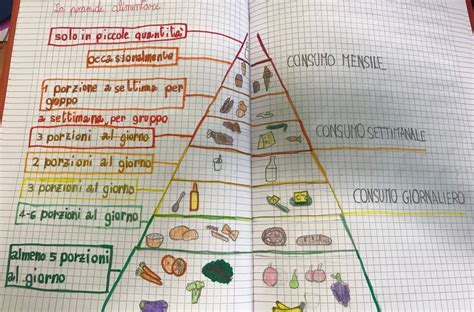 La piramide alimentare
solo in piccole quantità
occasionalmente
1 porzione a settima per
gruppo
a settimana per gruppo
3 porzioni al giorno
2 porzioni al giorno
3 porzioni al giorno
4-6 porzioni al giorno
almeno 5 porzioni
al giorno
CONSUMO MENSILE
CONSUMO SETTIMANALE
CONSUMO GIORNALIERO